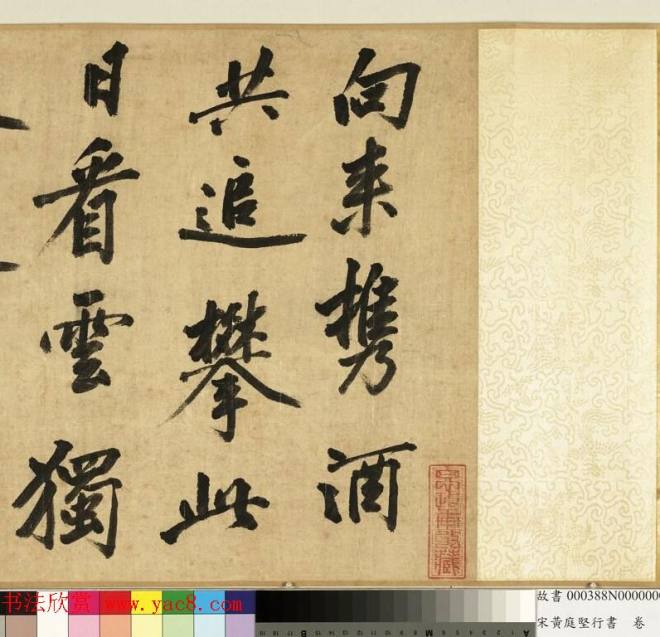 向来携酒
共追攀此
日看雲獨
书法欣赏 www.yac8.com
故書 000388N0000000
宋黃庭堅行書 卷